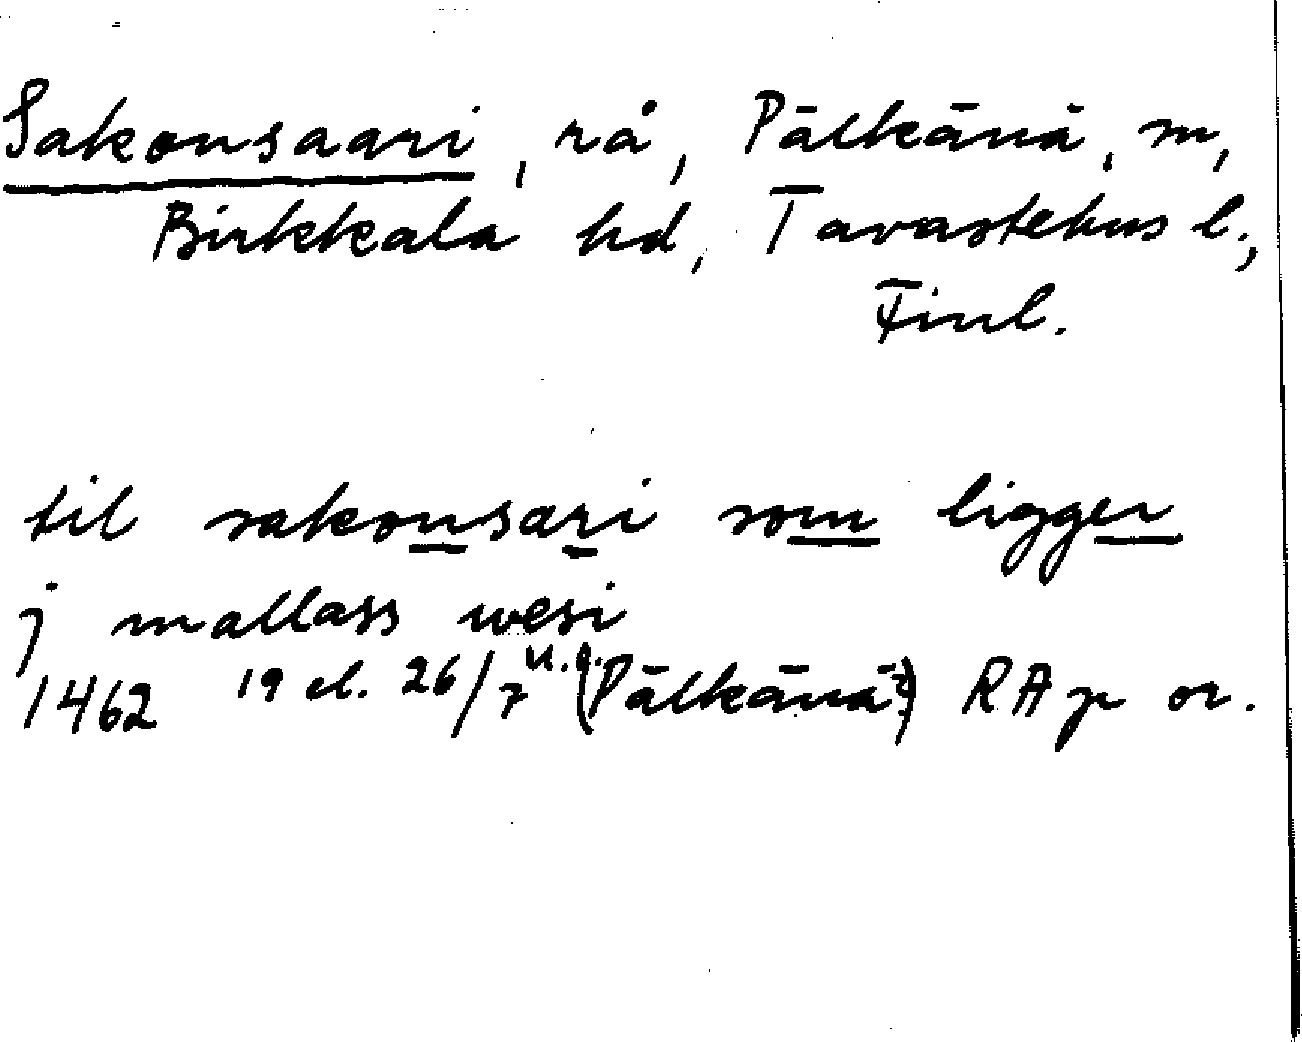 Sakonsaari, rå, Pälkänä, sn,
Birkkala hd, Tavastehus l.,
Finl.
til sakonsari som ligger
j mallass wesi
1462 19 el. 26/7 u.o. (Pälkänä) RAp or.